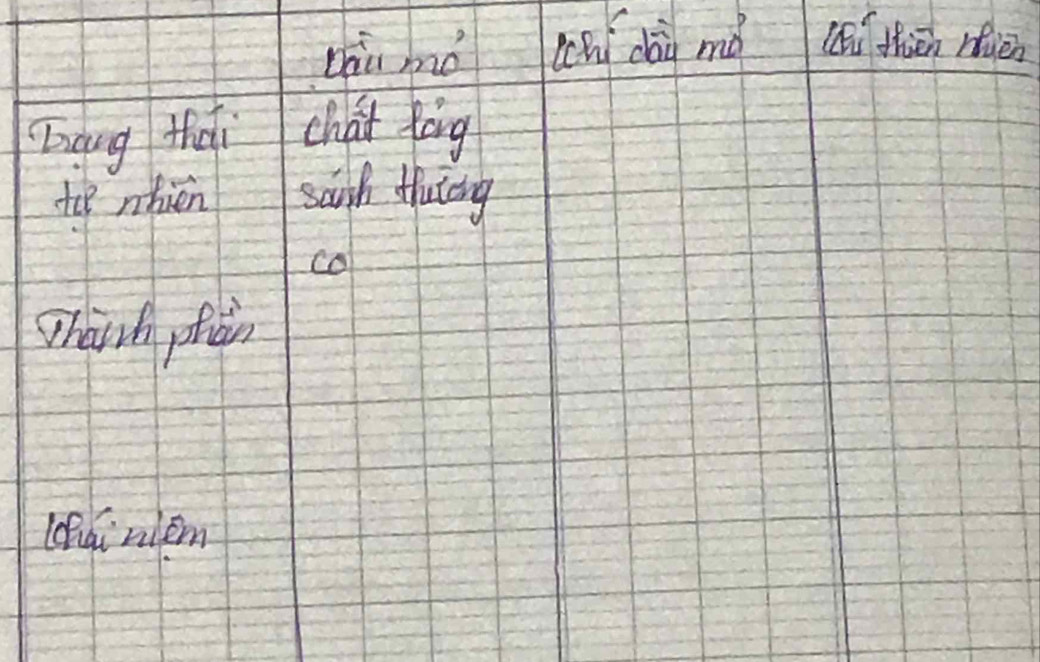 Dầu mỏ Khí dầu mỏ Khí thiên nhiên
Trạng thái chất lỏng
tự nhiên sánh thường
co
Thành phần
Khái niệm